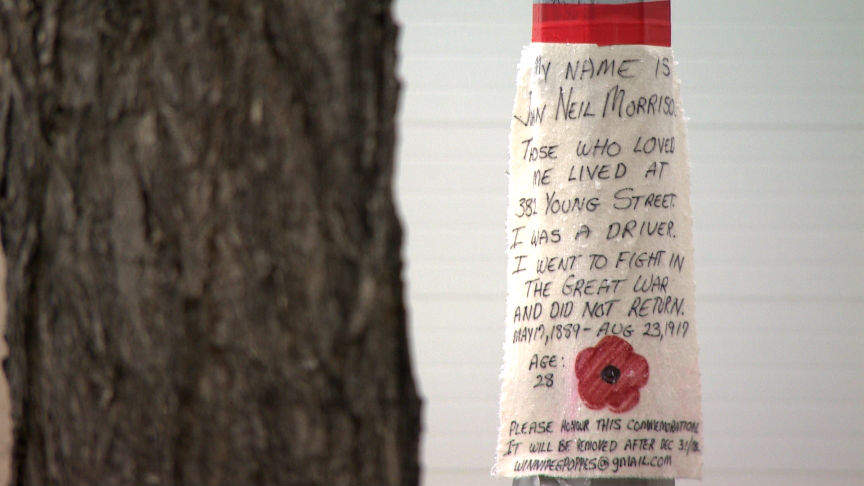 MY NAME IS
JOHN NEIL MORRISO
THOSE WHO LOVED
ME LIVED AT
382 YOUNG STREET.
I WAS A DRIVER.
I WENT TO FIGHT IN
THE GREAT WAR
AND DID NOT RETURN.
MAY 17, 1889 - AUG 23, 1917
AGE:
28
PLEASE HONOUR THIS COMMEMORATION.
IT WILL BE REMOVED AFTER DEC 31/18.
WINNIPEGPOPPIES@gmail.com